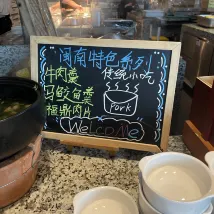 闽南特色系列
传统小吃
牛肉羹
马鲛鱼羹
福鼎肉片
Pork
WeLcoMe